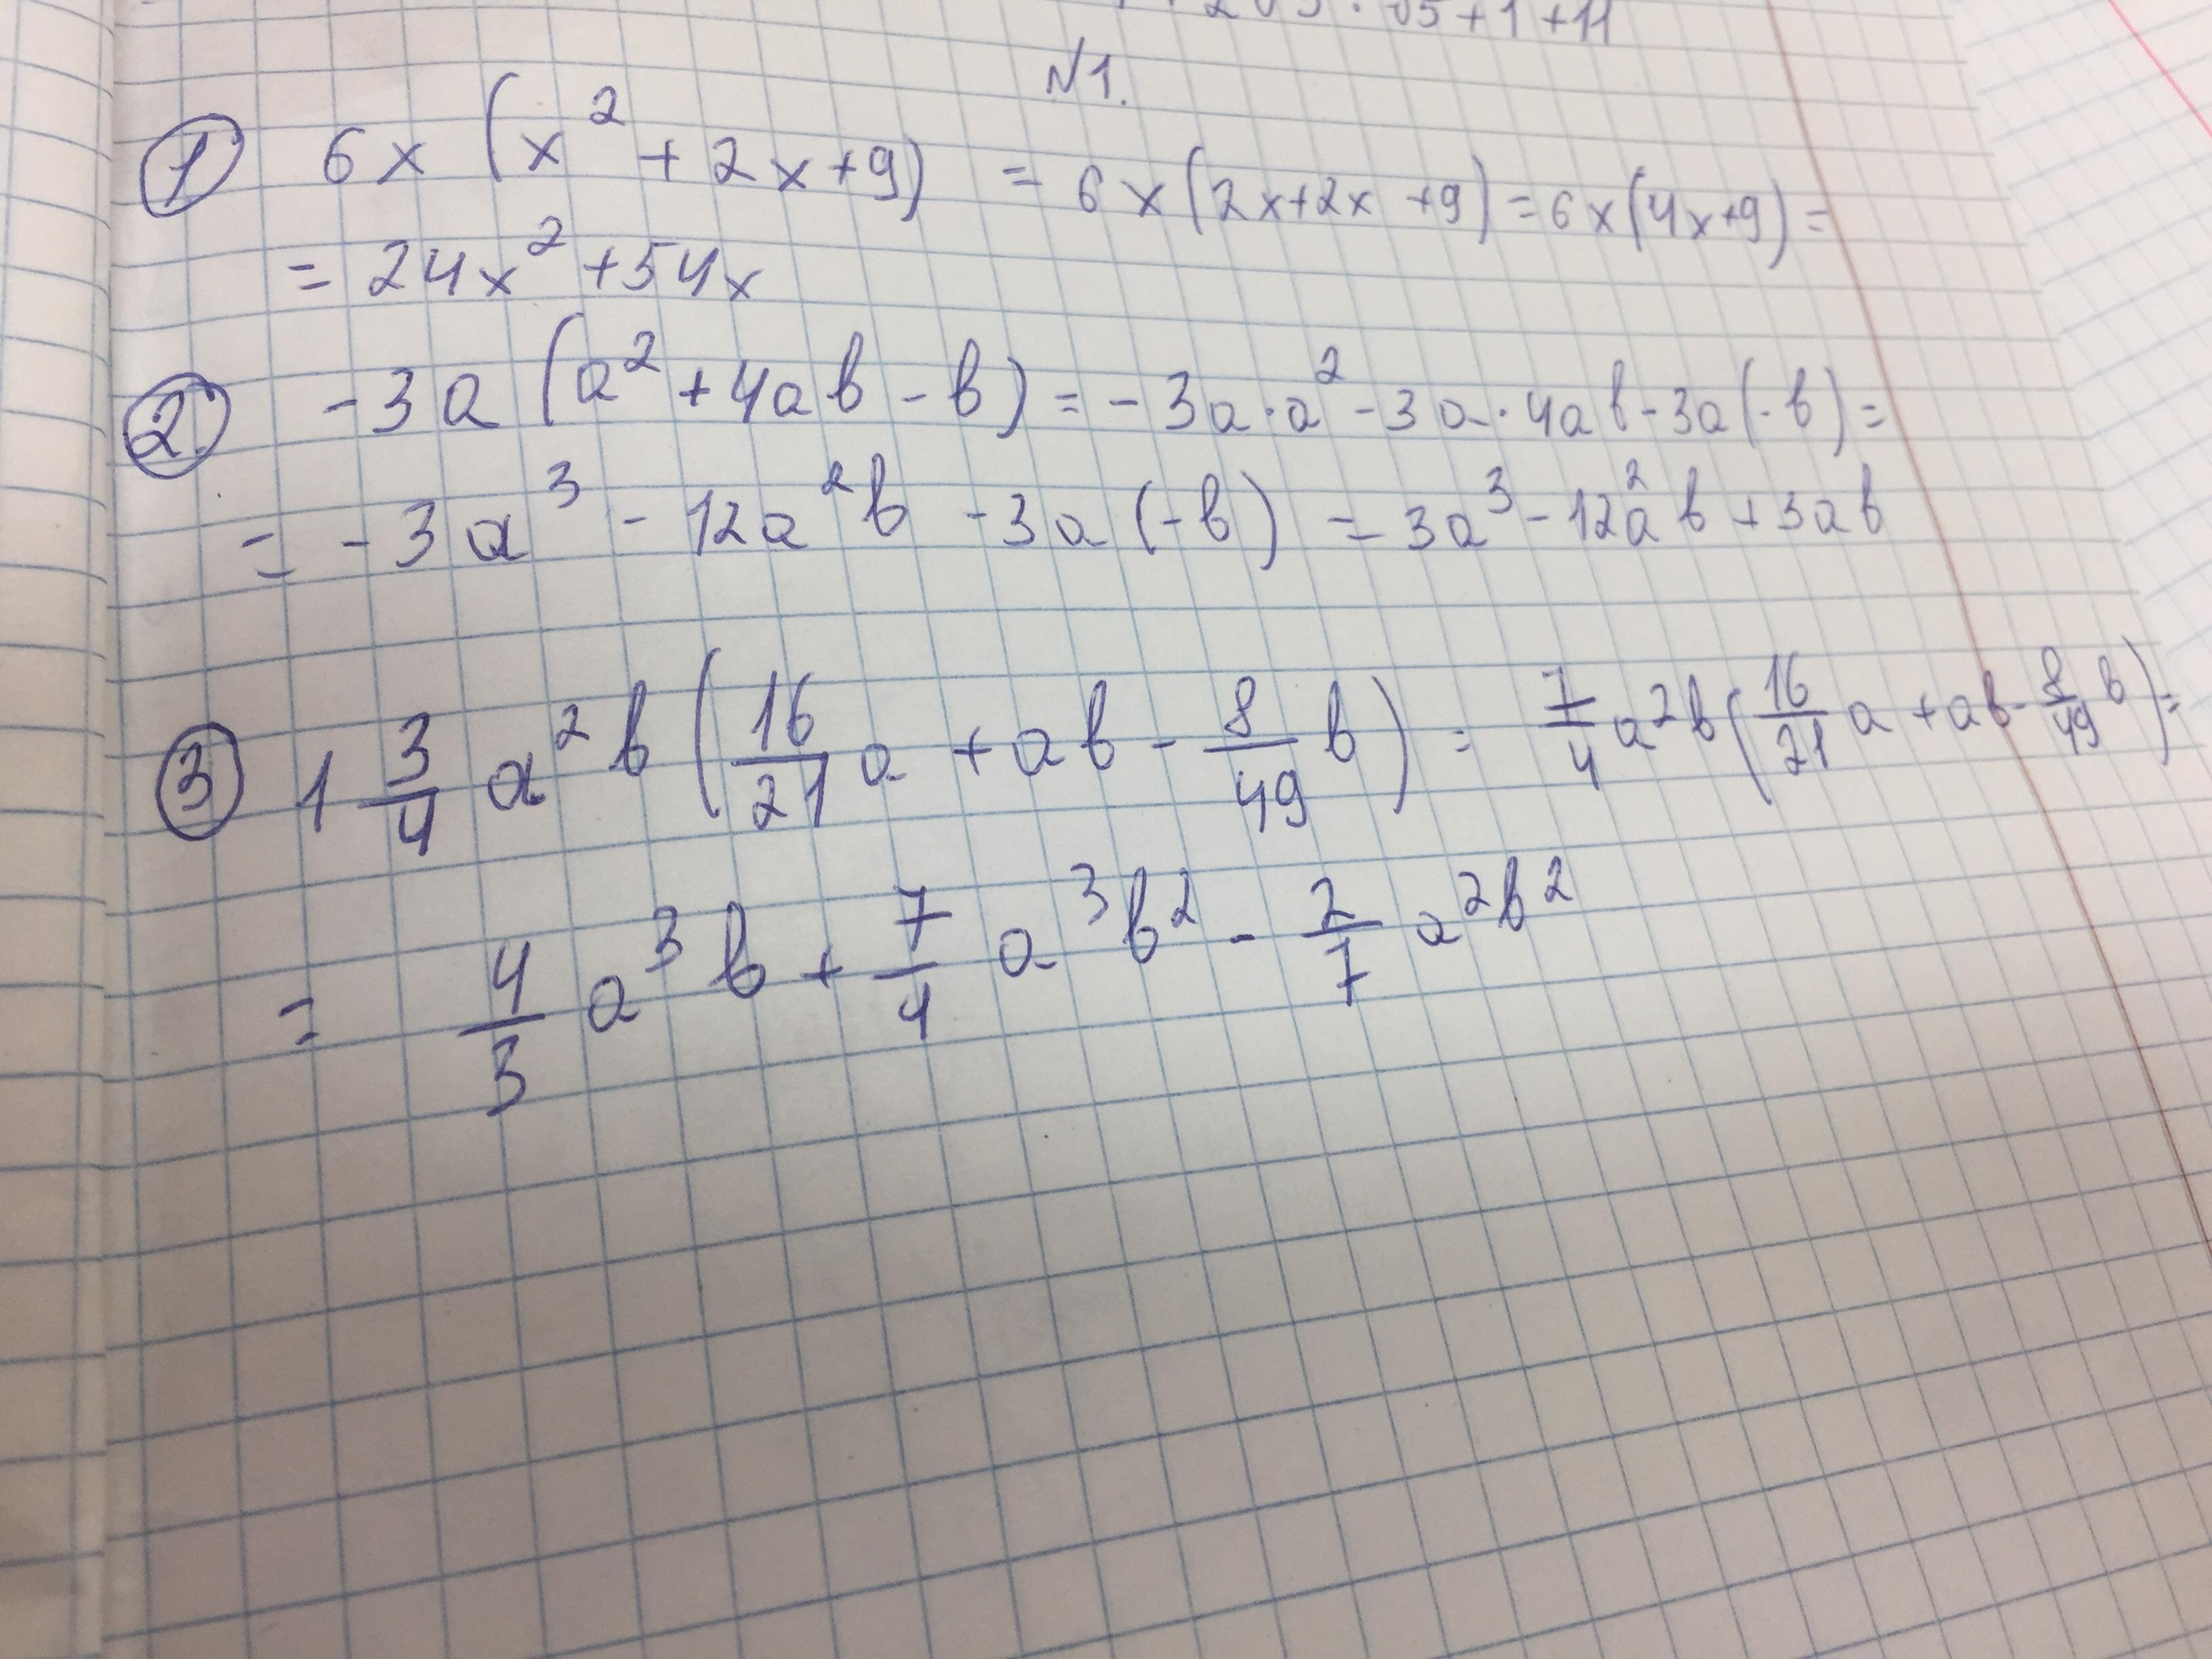 5+1+11
№1.
① 6x (x² + 2x+9) = 6x(2x+2x+9)=6x(4x+9)=
= 24x² +54x
② -3a (a² +4ab - b) = -3a·a² -3a·4ab-3a(-b)=
= -3a³ - 12a²b -3a(-b) = 3a³ - 12a²b +3ab
③ 1 3/4 a²b (16/21 a + ab - 8/49 b) = 7/4 a²b(16/21 a + ab - 8/49 b)=
= 4/3 a³b + 7/4 a³b² - 2/7 a²b²